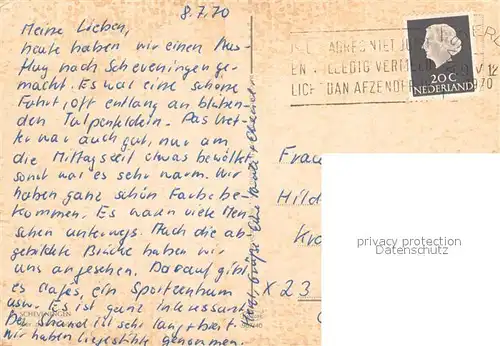 8.7.70
Meine Lieben,
heute haben wir einen Aus-
flug nach Scheveningen ge-
macht. Es war eine schöne
Fahrt, oft entlang an blühen-
den Tulpenfeldern. Das Wet-
ter war auch gut, nur am
die Mittagszeit etwas bewölkt
sonst war es sehr warm. Wir
haben ganz schön Farbe be-
kommen. Es waren viele Men-
schen unterwegs. Auch die ab-
gebildete Brücke haben wir
uns angesehen. Darauf gibt
es Cafes, ein Sportzentrum
usw. Es ist ganz interessant.
Der Strand ist sehr lang + breit.
Wir haben Liegestühle genommen.
Herzl. Grüße Eure
SCHEVENINGEN
ADRES NIET
VOLLEDIG VERMELD
DAN AFZENDER
1970
20 C
NEDERLAND
Frau
Hild
X 23
privacy protection
AKpool.com